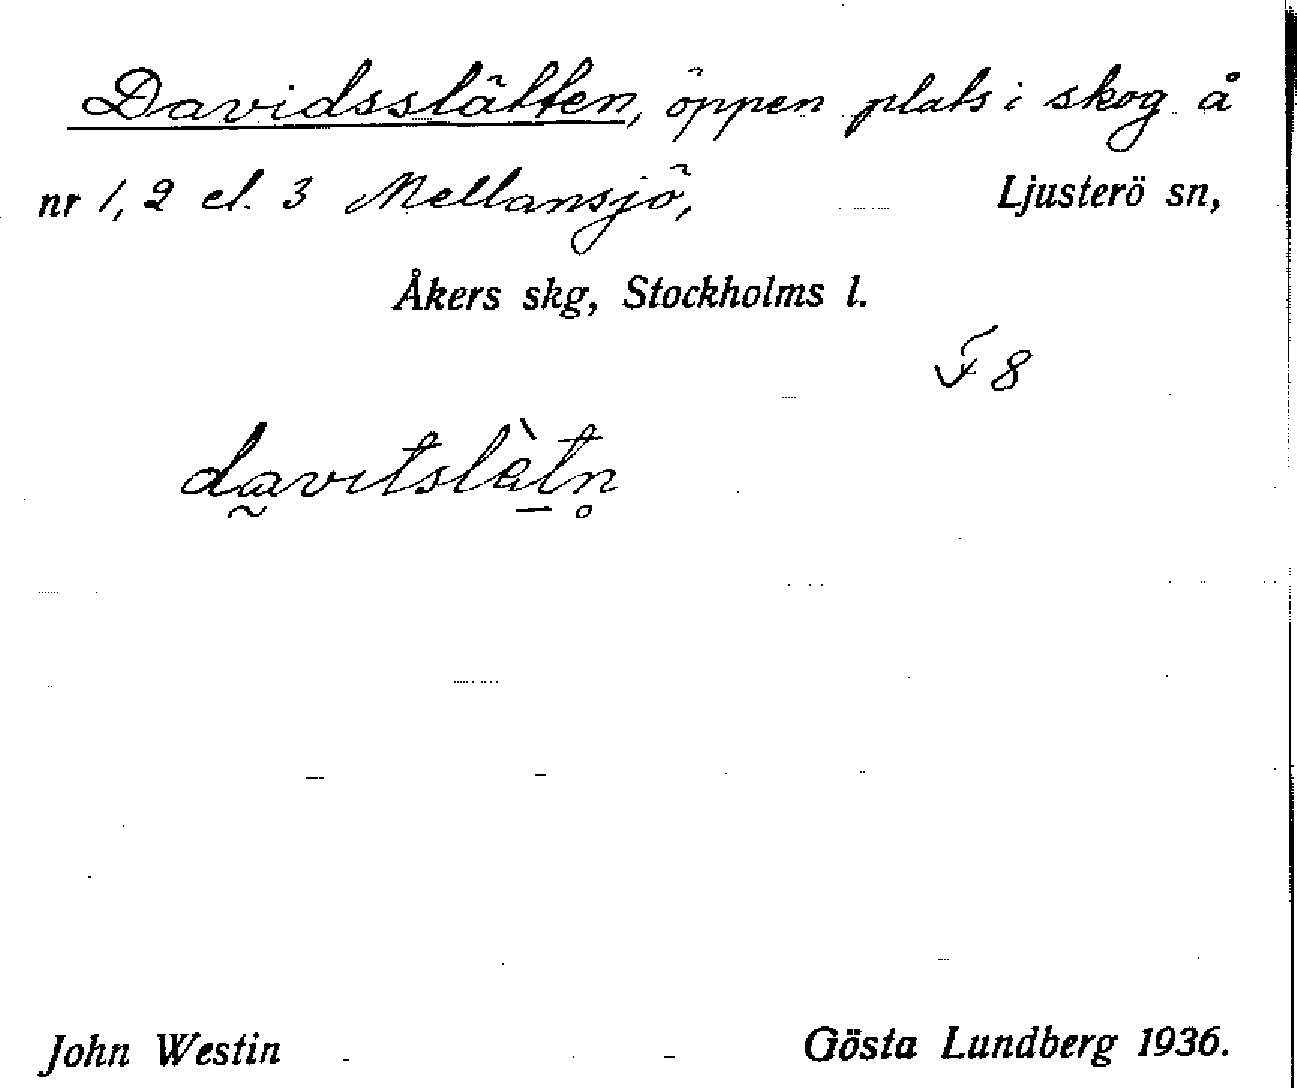 Davidsslätten, öppen plats i skog å
nr 1, 2 el. 3 Mellansjö, Ljusterö sn,
Åkers skg, Stockholms l.
F 8
da̰vitslὲ̱tn̥
John Westin Gösta Lundberg 1936.